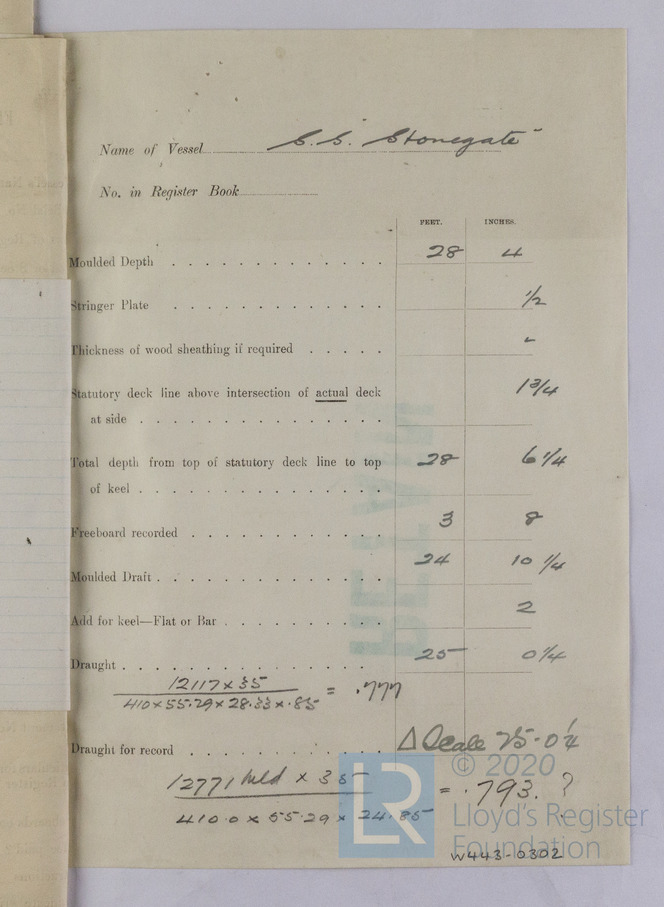 Name of Vessel S.S. Stonegate
No. in Register Book
FEET. INCHES.
Moulded Depth 28 4
Stringer Plate 1/2
Thickness of wood sheathing if required -
Statutory deck line above intersection of actual deck
at side 1 3/4
Total depth from top of statutory deck line to top
of keel 28 6 1/4
Freeboard recorded 3 8
Moulded Draft 24 10 1/4
Add for keel—Flat or Bar 2
Draught 25 0 1/4
12117 x 35
410 x 55.29 x 28.33 x .85 = .777
Draught for record Δ Scale 25-0 1/4
12771 mld x 35
410.0 x 55.29 x 24.85 = .793. ?
© 2020
LR
Lloyd's Register
Foundation
W443-0302